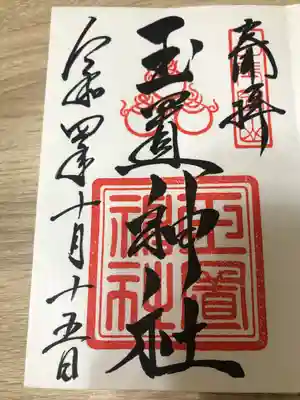 奉拝
玉置神社
玉置神社
令和四年十月十五日